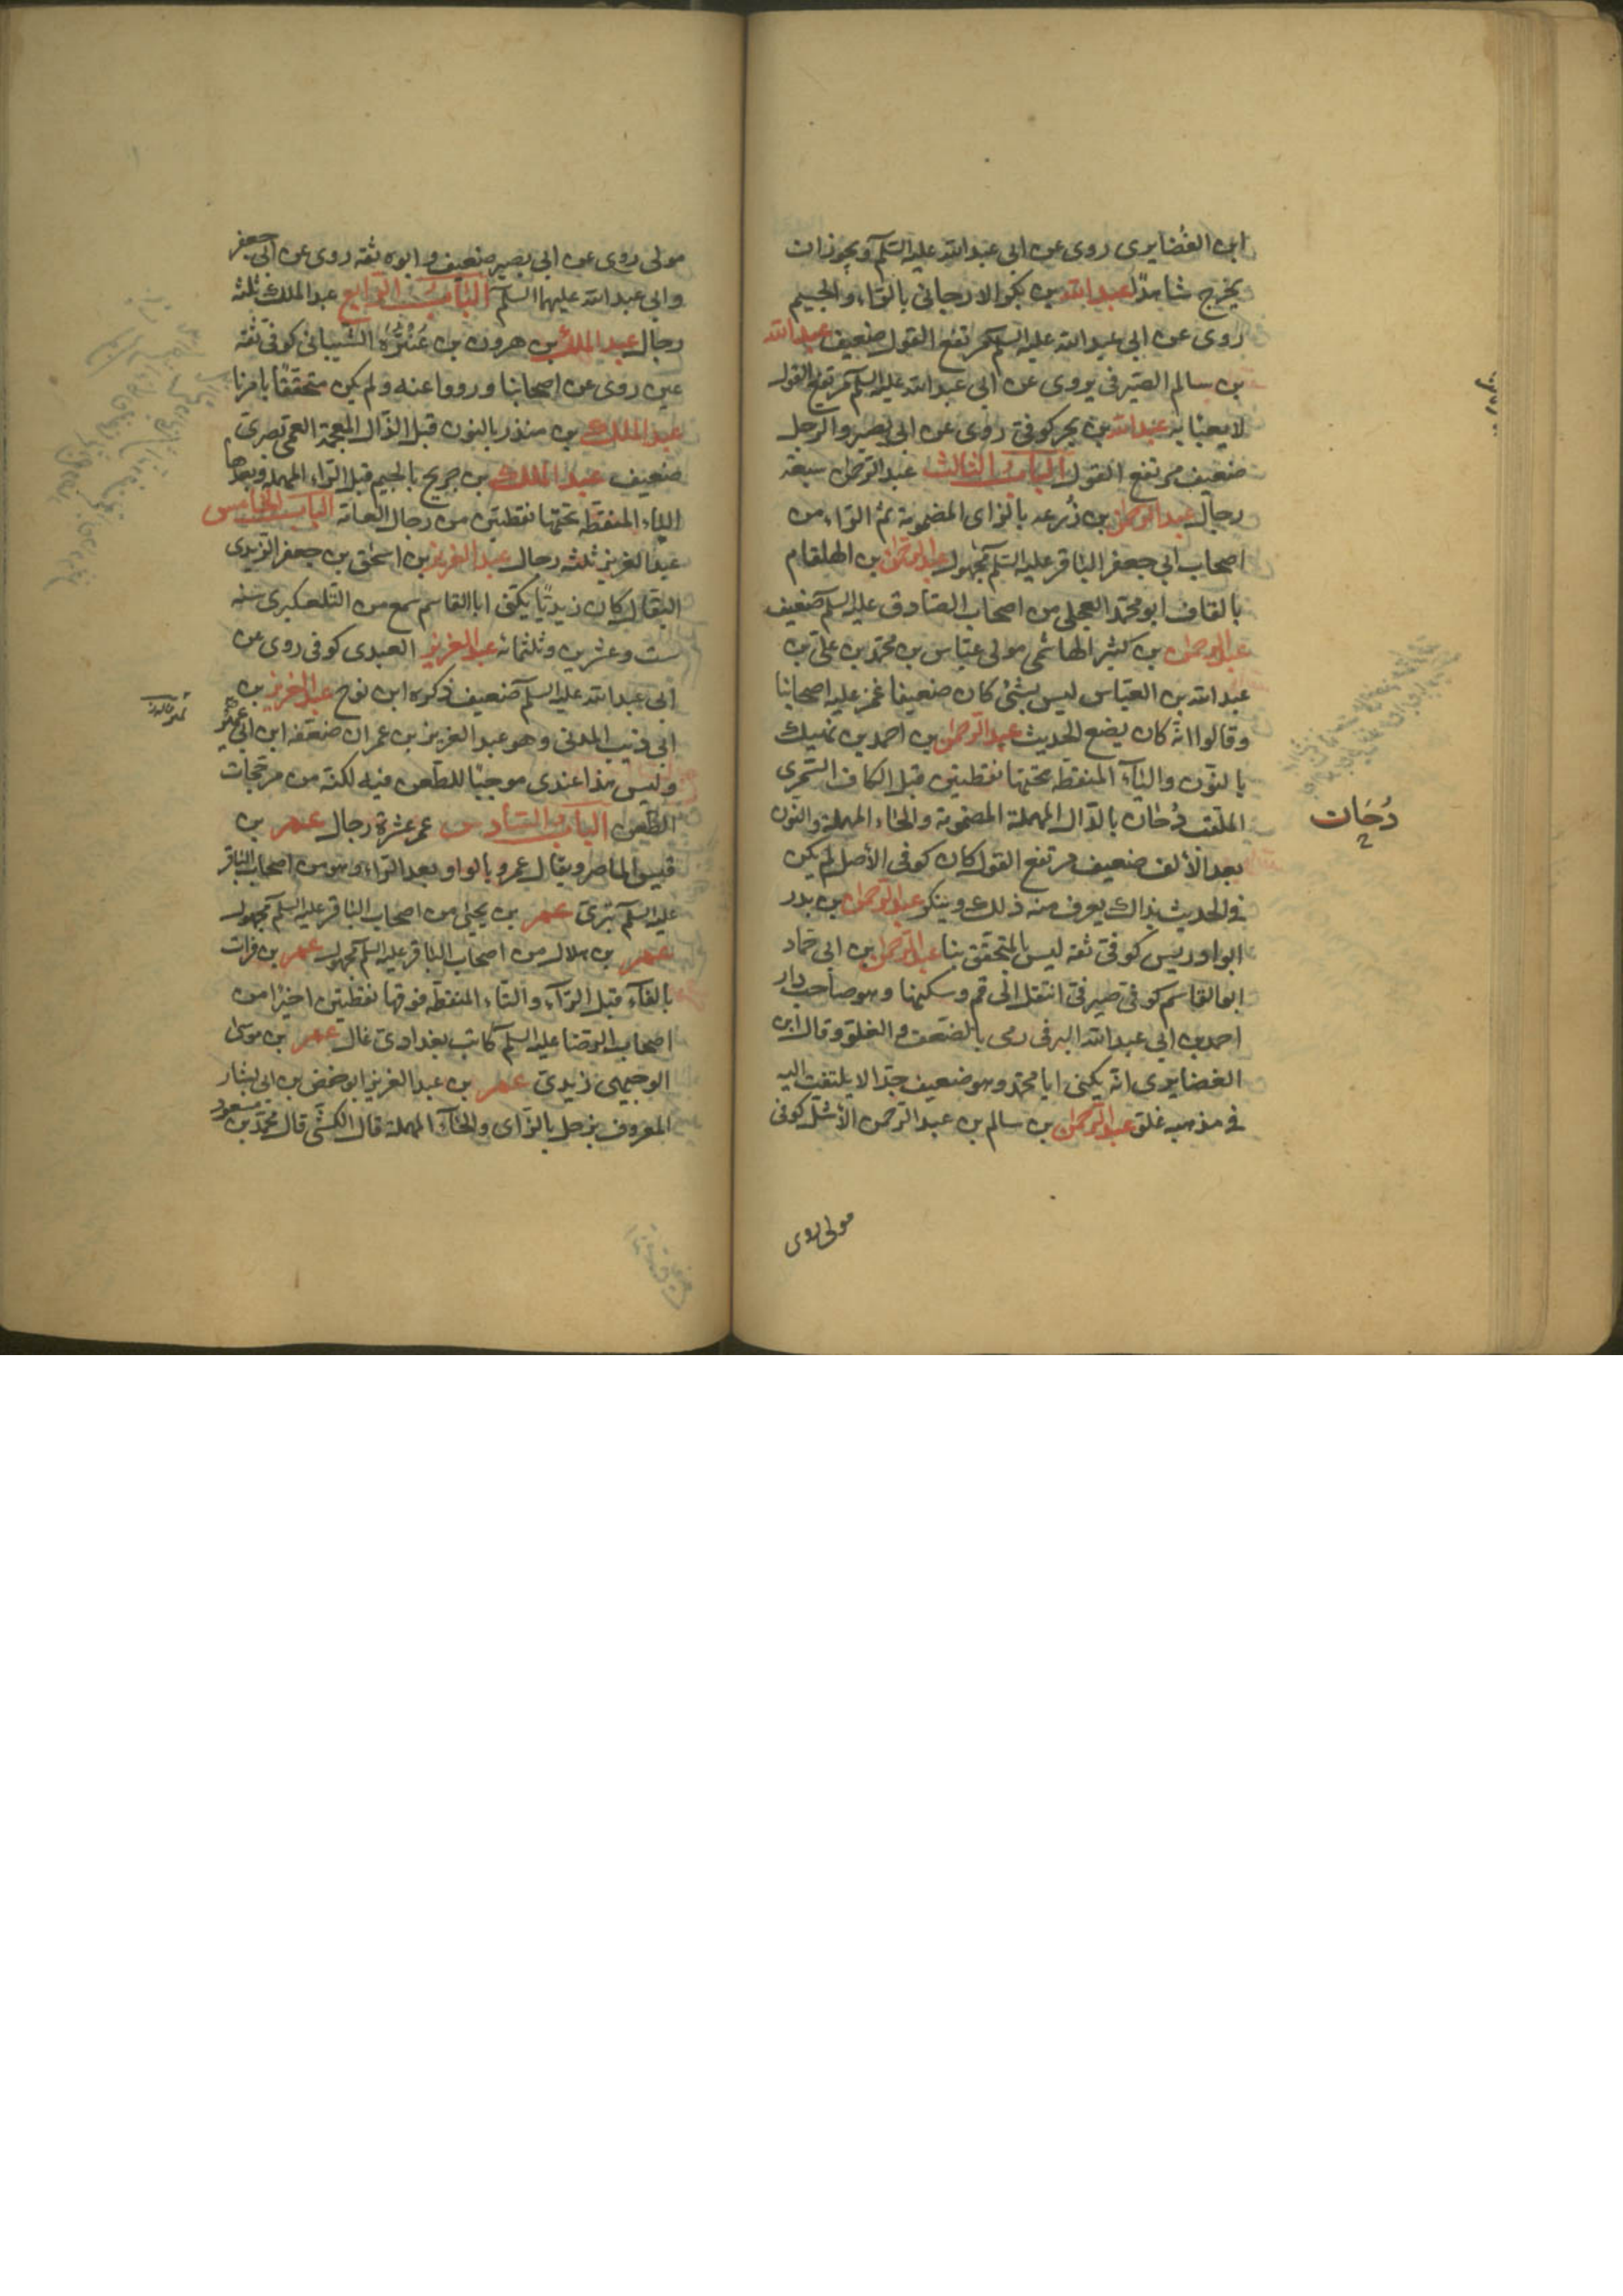 ابن الغضايرى روى عن ابى عبد الله عليه السلم ويجوز ان
يخرج شاهدًا عبد الله بن بكر الارجانى بالراء والجيم
روى عن ابى عبد الله عليه السلم مرتفع القول ضعيف عبد الله
بن سالم الصيرفى يروى عن ابى عبد الله عليه السلم مرتفع القول
لا يعبأ به عبد الله بن بحر كوفى روى عن ابى بصير والرجل
ضعيف مرتفع القول الباب الثالث عبد الرحمن سبعة
رجال عبد الرحمن بن زرعه بالزاى المضمومة ثم الراء من
اصحاب ابى جعفر الباقر عليه السلم مجهول عبد الرحمن بن الهلقام
بالقاف ابو محمد العجلى من اصحاب الصادق عليه السلم ضعيف
عبد الرحمن بن كثير الهاشمى مولى عباس بن محمد بن على بن
عبد الله بن العباس ليس بشئ كان ضعيفا غمز عليه اصحابنا
وقالوا انه كان يضع الحديث عبد الرحمن بن احمد بن نهيك
بالنون والياء المنقطة تحتها نقطتين قبل الكاف السمرى
الملقب دحان بالدال المهملة المضمومة والحاء المهملة والنون
بعد الألف ضعيف مرتفع القول كان كوفى الأصل لم يكن
فى الحديث بذاك يعرف منه ذلك وينكر عبد الرحمن بن بدر
ابو ادريس كوفى ثقه ليس بالمتحقق بنا عبد الرحمن بن ابى حماد
ابو القاسم كوفى صيرفى انتقل الى قم وسكنها وهو صاحب دار
احمد بن ابى عبد الله البرقى رمى بالضعف والغلو وقال ابن
الغضايرى انه يكنى ابا محمد وهو ضعيف جدا لا يلتفت اليه
فى مذهبه غلو عبد الرحمن بن سالم بن عبد الرحمن الأشل كوفى
مولى روى
دُحَان
مولى روى عن ابى بصير ضعيف وابوه ثقه روى عن ابى جعفر
وابى عبد الله عليهما السلم الباب الرابع عبد الملك ثلثة
رجال عبد الملك بن هرون بن عنترة الشيبانى كوفى ثقه
عين روى عن اصحابنا ورووا عنه ولم يكن متحققًا بامرنا
عبد الملك بن منذر بالنون قبل الذال المعجمة العمى بصرى
ضعيف عبد الملك بن جريح بالجيم قبل الراء المهملة وبعدها
الياء المنقطه تحتها نقطتين من رجال العامة الباب الخامس
عبد العزيز ثلثه رجال عبد العزيز بن اسحق بن جعفر الزيدى
البقال كان زيديًا يكنى ابا القاسم سمع من التلعكبرى سنه
ست وعشرين وثلثمائه عبد العزيز العبدى كوفى روى عن
ابى عبد الله عليه السلم ضعيف ذكره ابن نوح عبد العزيز بن
ابى ذيب المدنى وهو عبد العزيز بن عمران ضعفه ابن نمير
وليس هذا عندى موجبًا للطعن فيه لكنه من مرجحات
الطعن الباب السادس عمر عشرة رجال عمر بن
قيس الماصر ويقال عمرو بالواو بعد الراء وهو من اصحاب الباقر
عليه السلم بترى عمر بن يحيى من اصحاب الباقر عليه السلم مجهول
عمر بن هلال من اصحاب الباقر عليه السلم مجهول عمر بن فرات
بالفاء قبل الراء والتاء المنقطة فوقها نقطتين اخيرًا من
اصحاب الرضا عليه السلم كاتب بغدادى غال عمر بن موسى
الوجيهى زيدى عمر بن عبد العزيز ابو حفص بن ابى بشار
المعروف بزحل بالزاى والحاء المهملة قال الكشى قال محمد بن مسعود